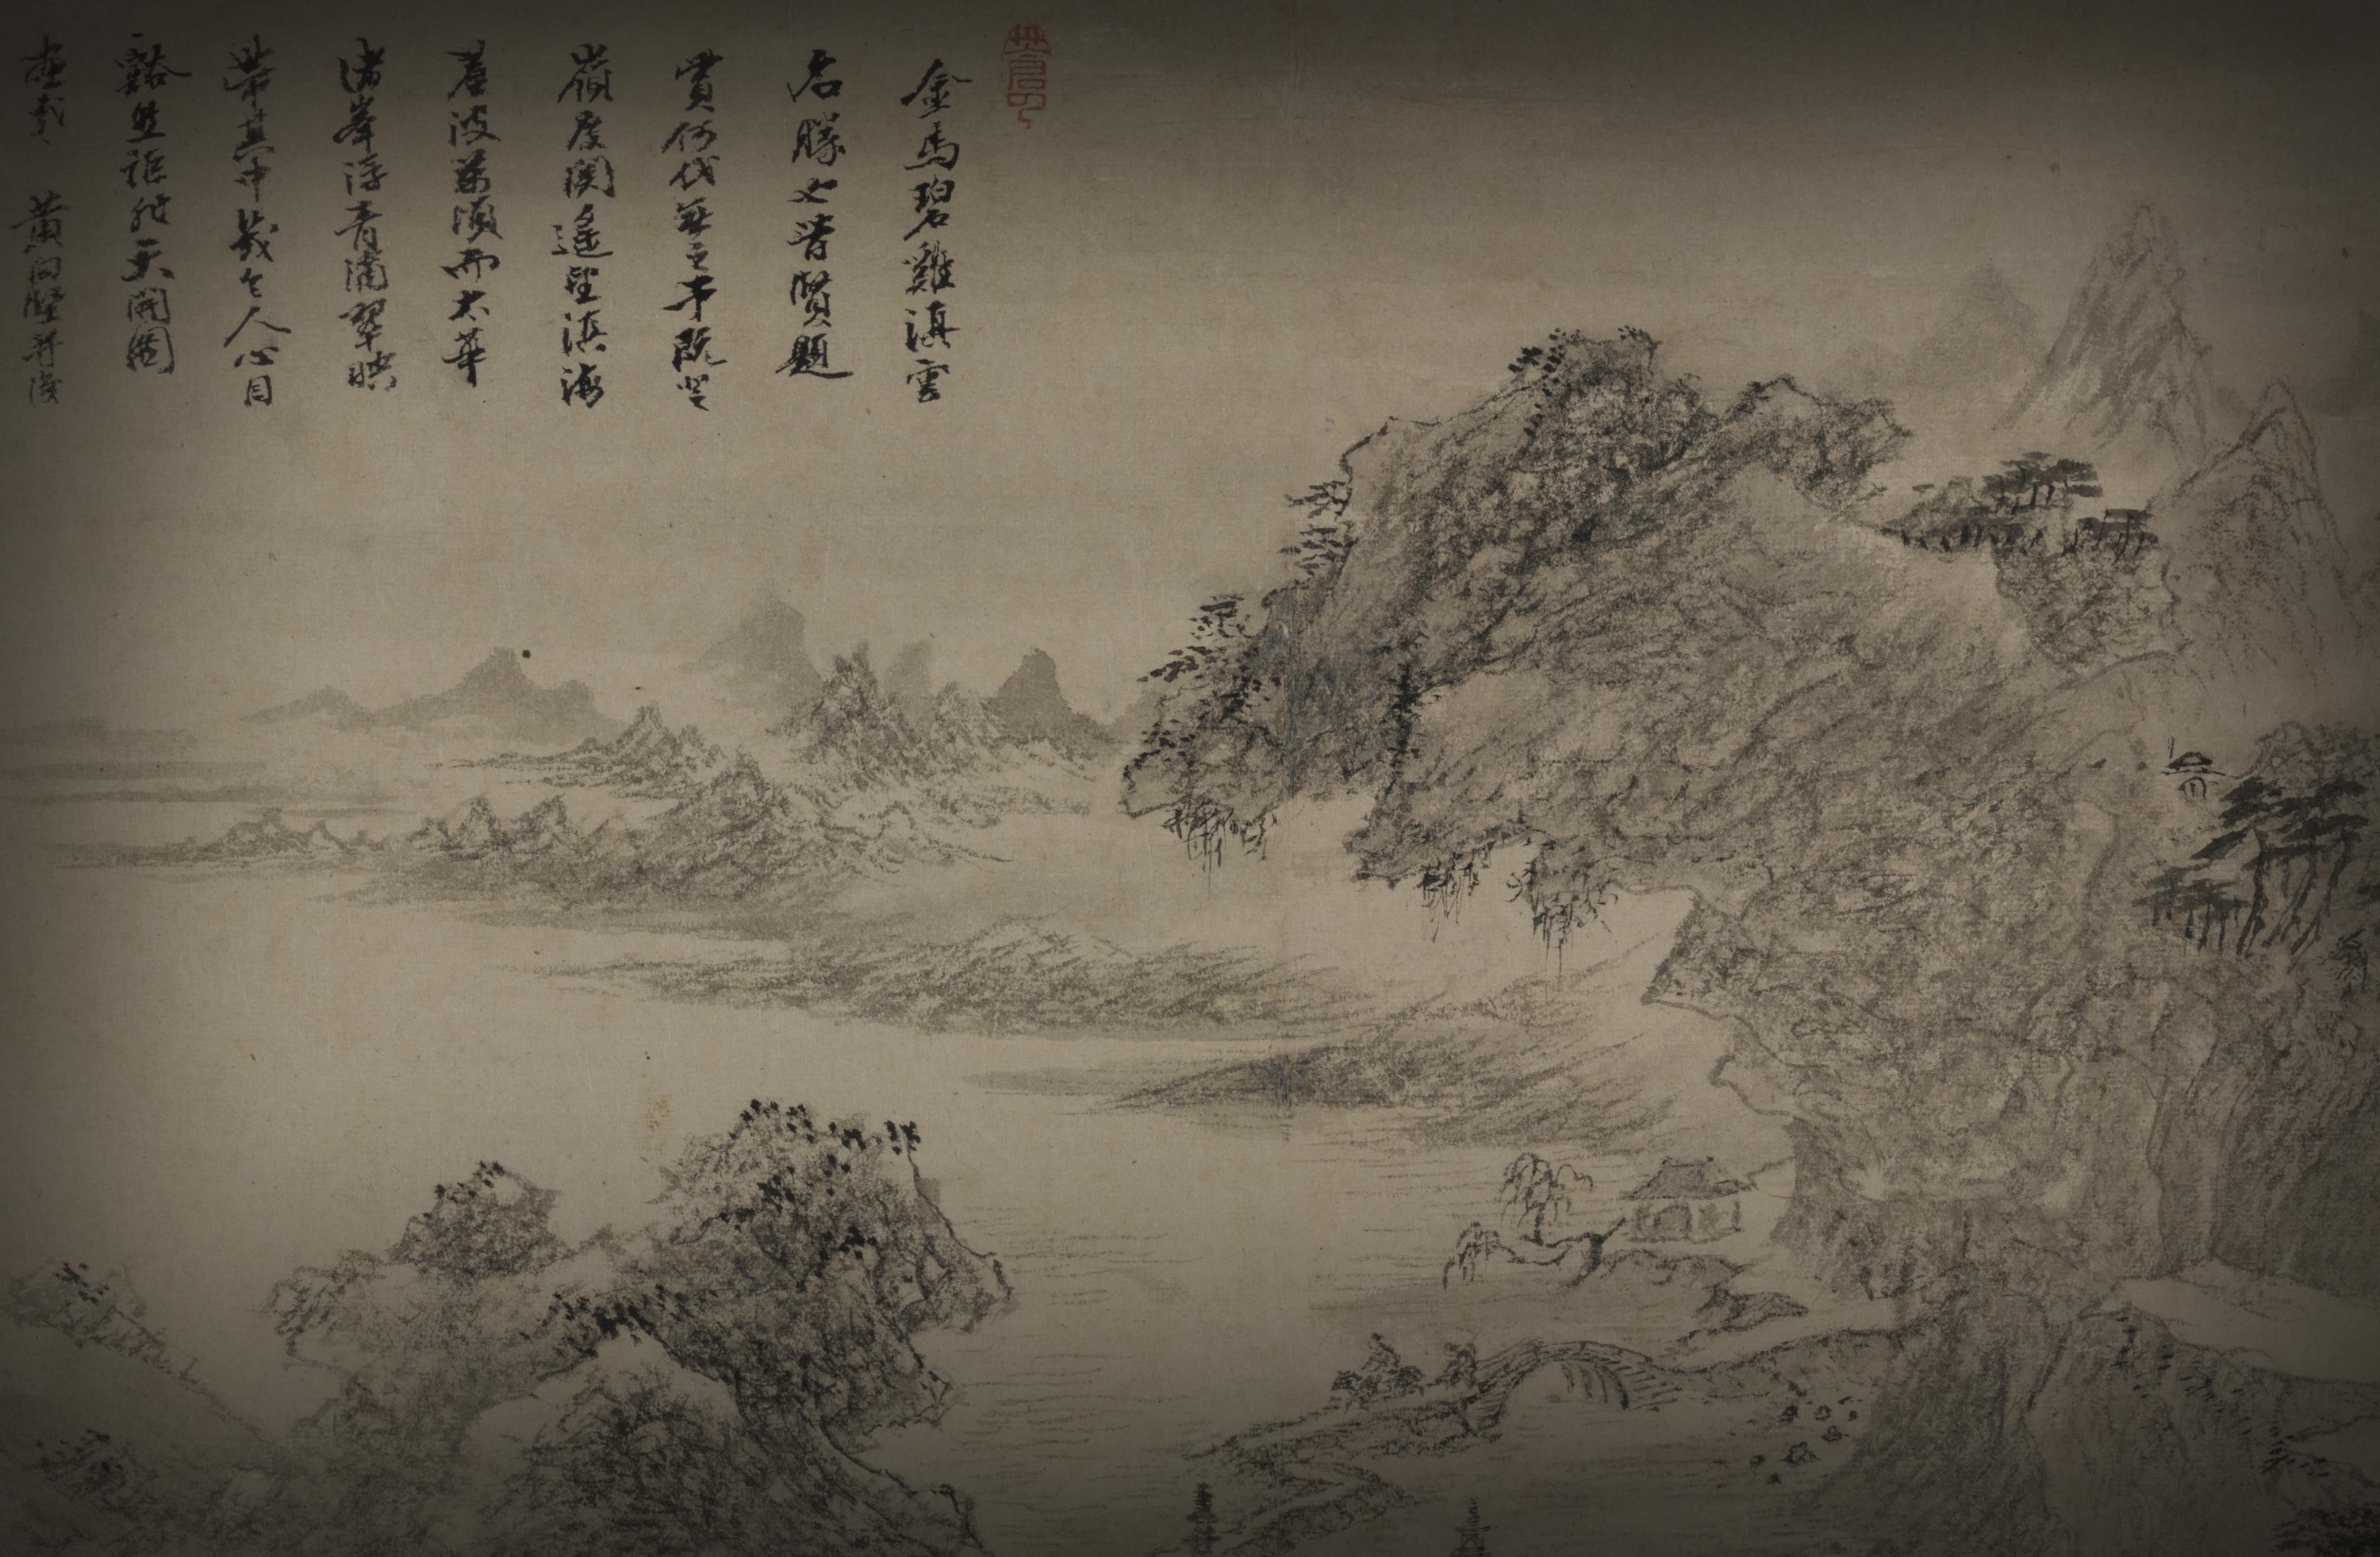 金馬碧雞滇雲
名勝也昔賢題
賞何代無之予既登
嶺度関遙望滇海
蒼波萬頃而太華
諸峯浮青滴翠映
帶其中幾令人心目
豁然詎非天開圖
畫哉 黃向堅